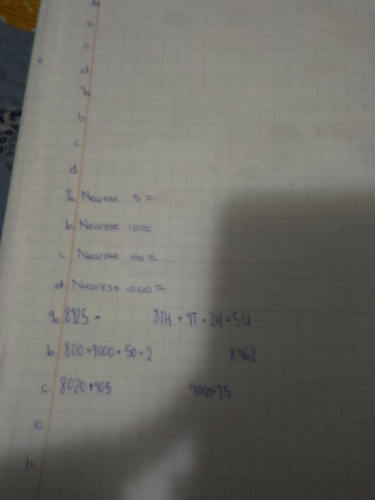 b
c
d
7a
b
c
d
8a Nearest 5 =
b. Nearest 10=
c. Nearest 100=
d. Nearest 1000=
9a 8925 = 8TH + 9T + 2H + 5U
b. 800+9000+50+2 8962
c. 8020+905 9000-75
10.
11.